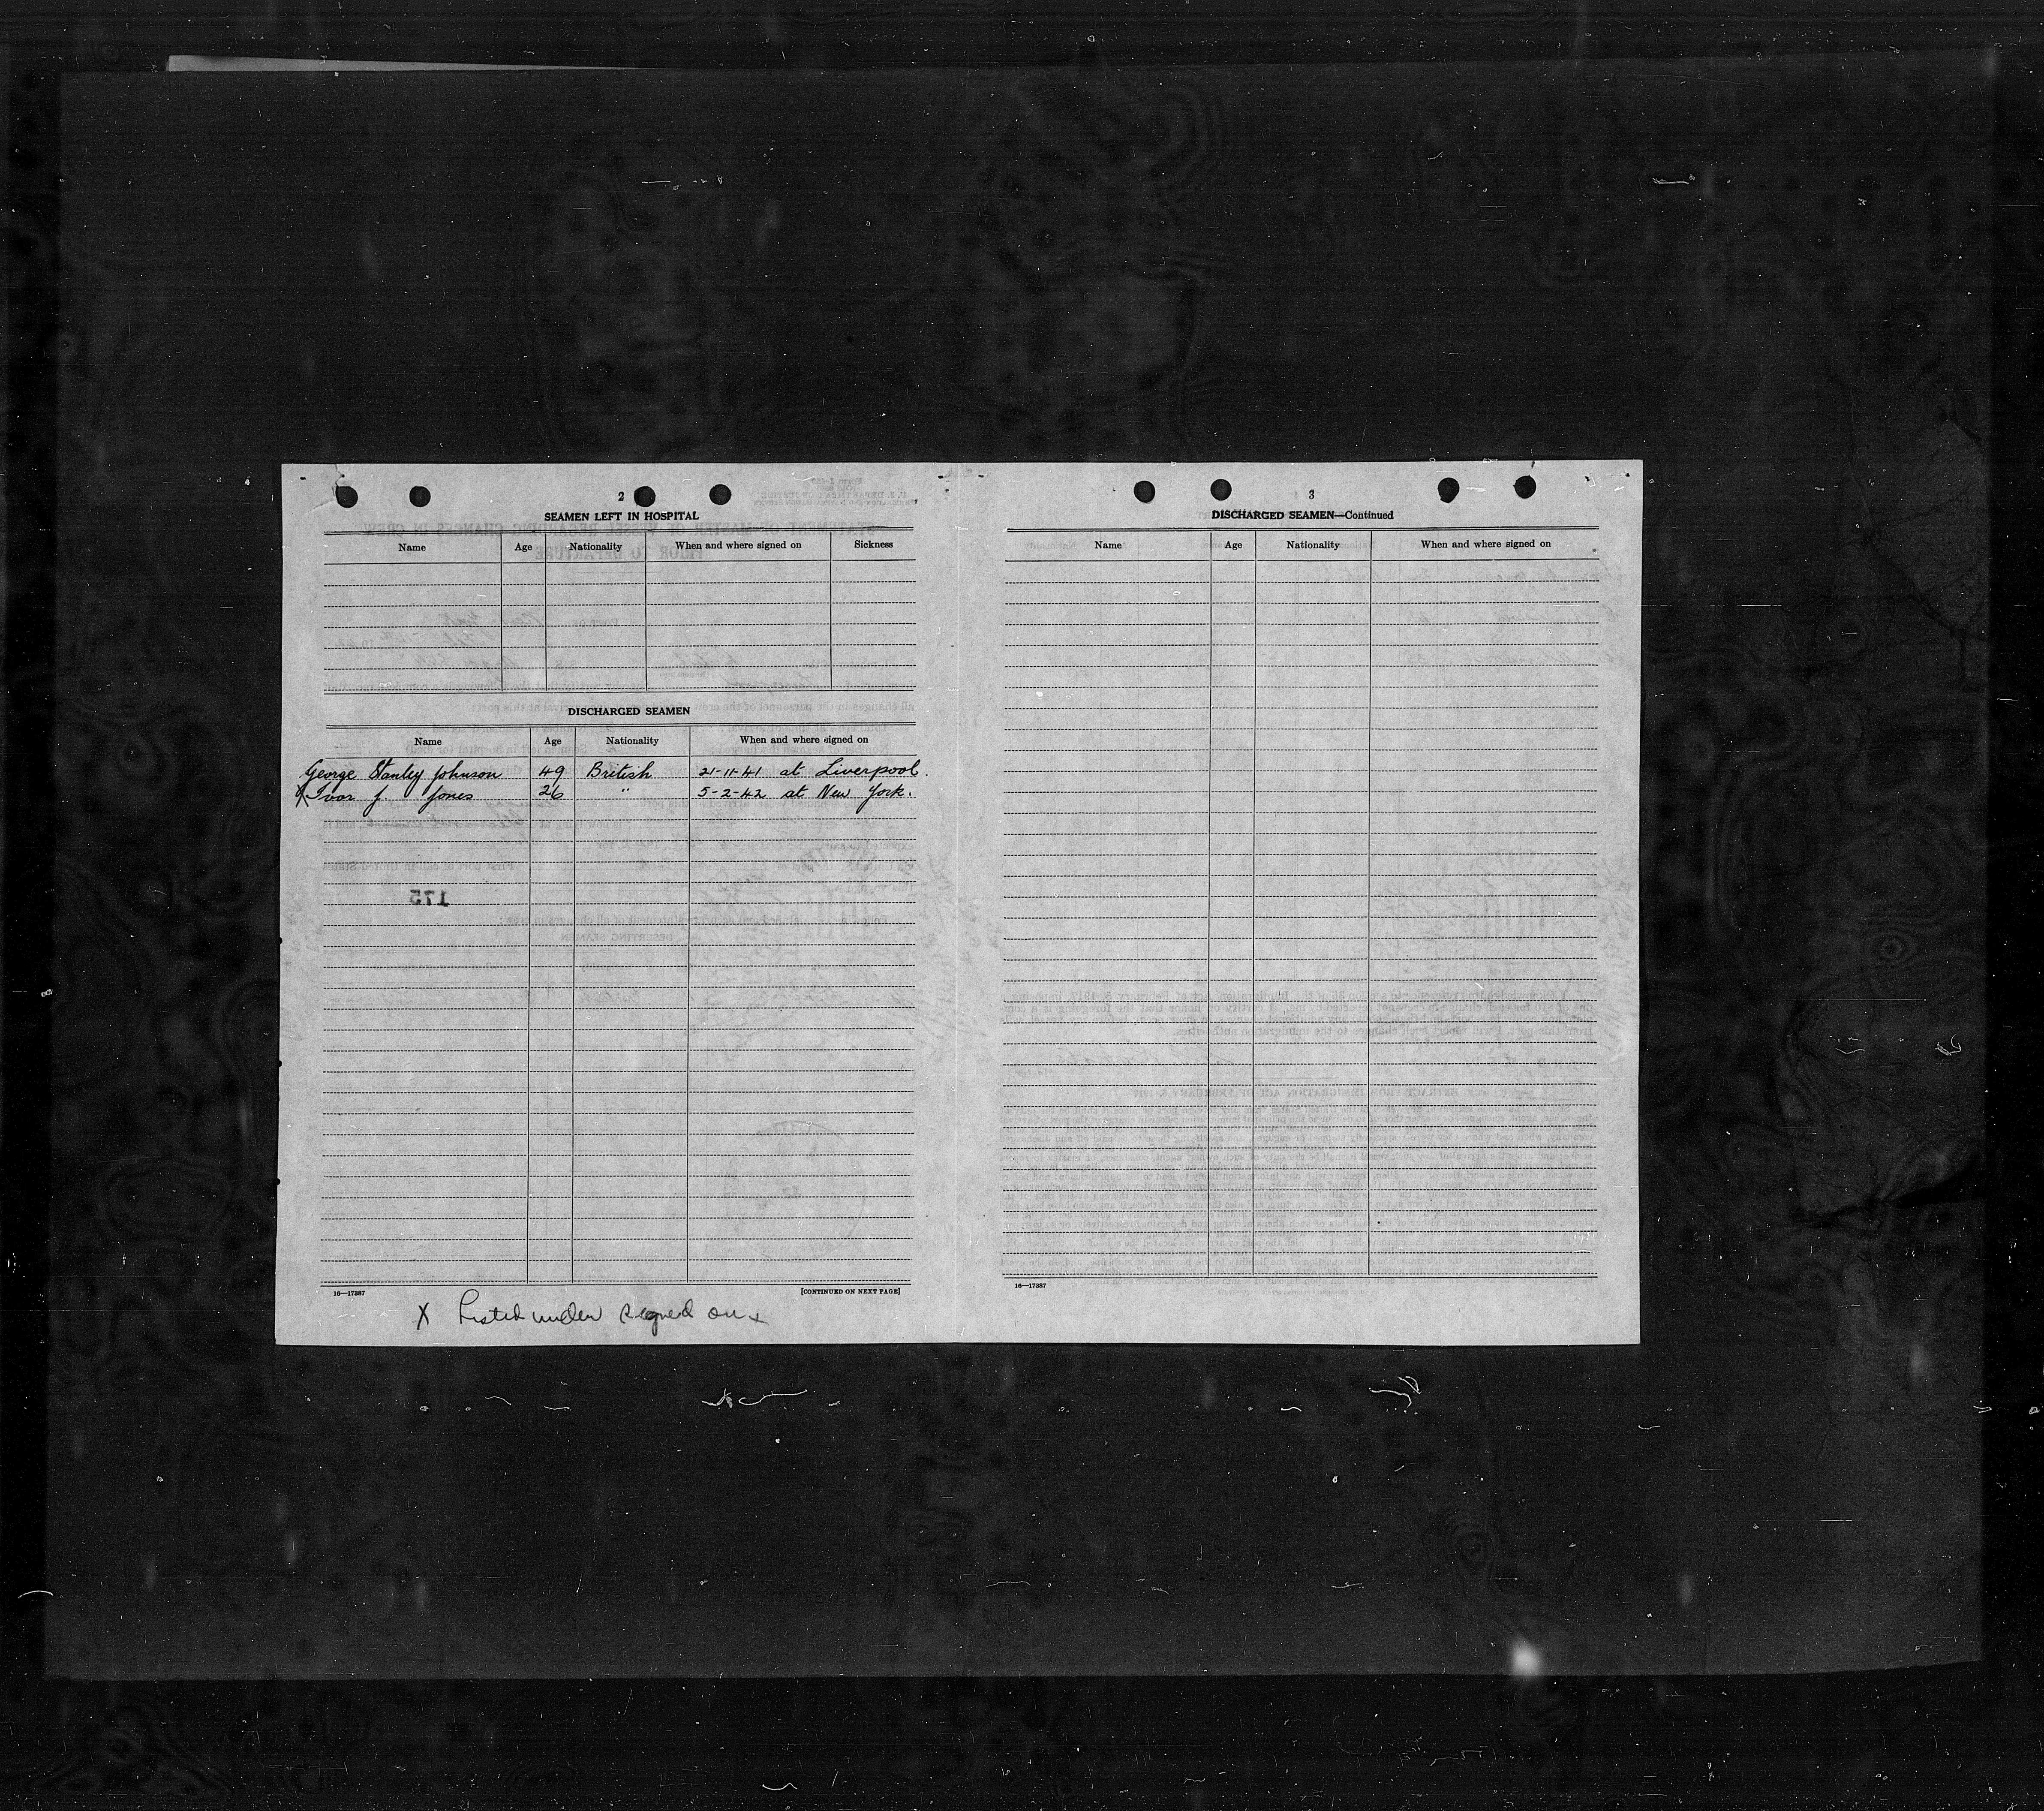 2
SEAMEN LEFT IN HOSPITAL
Name Age Nationality When and where signed on Sickness
DISCHARGED SEAMEN
Name Age Nationality When and where signed on
George Stanley Johnson 49 British 21-11-41 at Liverpool.
X Ivor J. Jones 26 " 5-2-42 at New York.
175
16—17387 [CONTINUED ON NEXT PAGE]
X Listed under signed on x
3
DISCHARGED SEAMEN—Continued
Name Age Nationality When and where signed on
16—17387